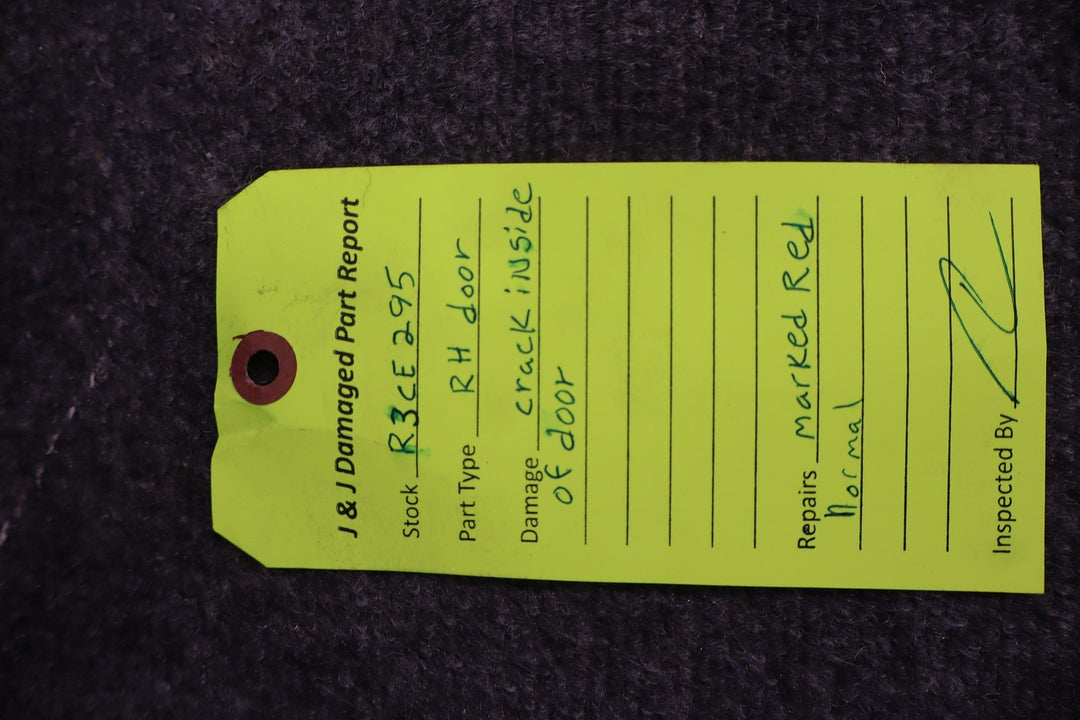 J & J Damaged Part Report
Stock R3CE295
Part Type RH door
Damage crack inside
of door
Repairs marked Red
Normal
Inspected By